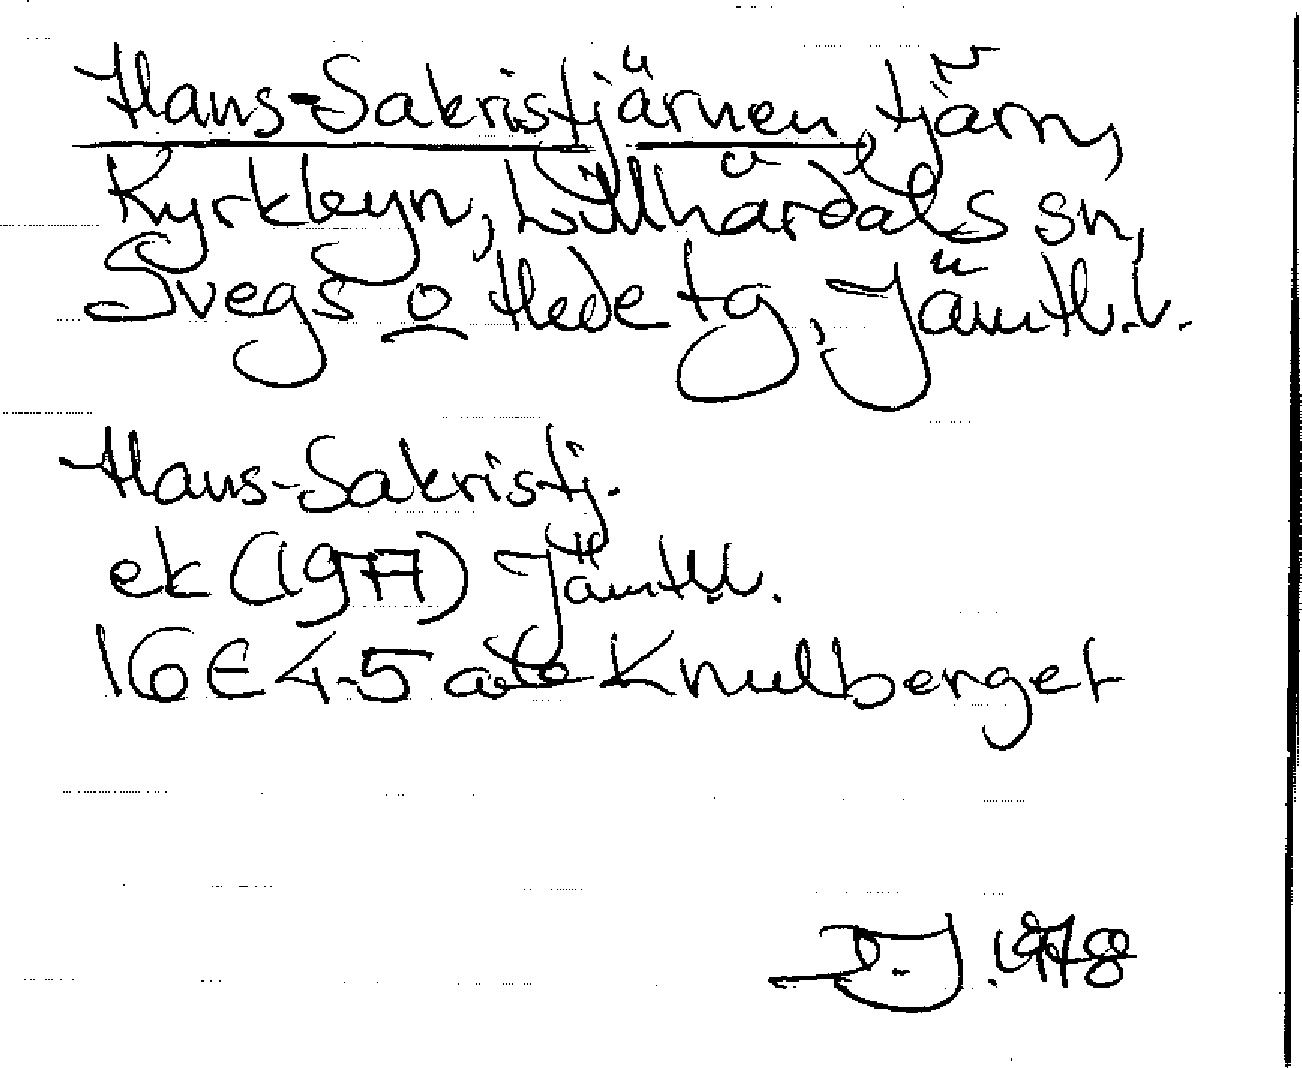 Hans-Sakristjärnen, tjärn,
Kyrkbyn, Lillhärdals sn,
Svegs o Hede tg, Jämtl.l.
Hans-Sakristj.
ek (1977) Jämtl.l.
16E 4-5 a Knulberget
1978